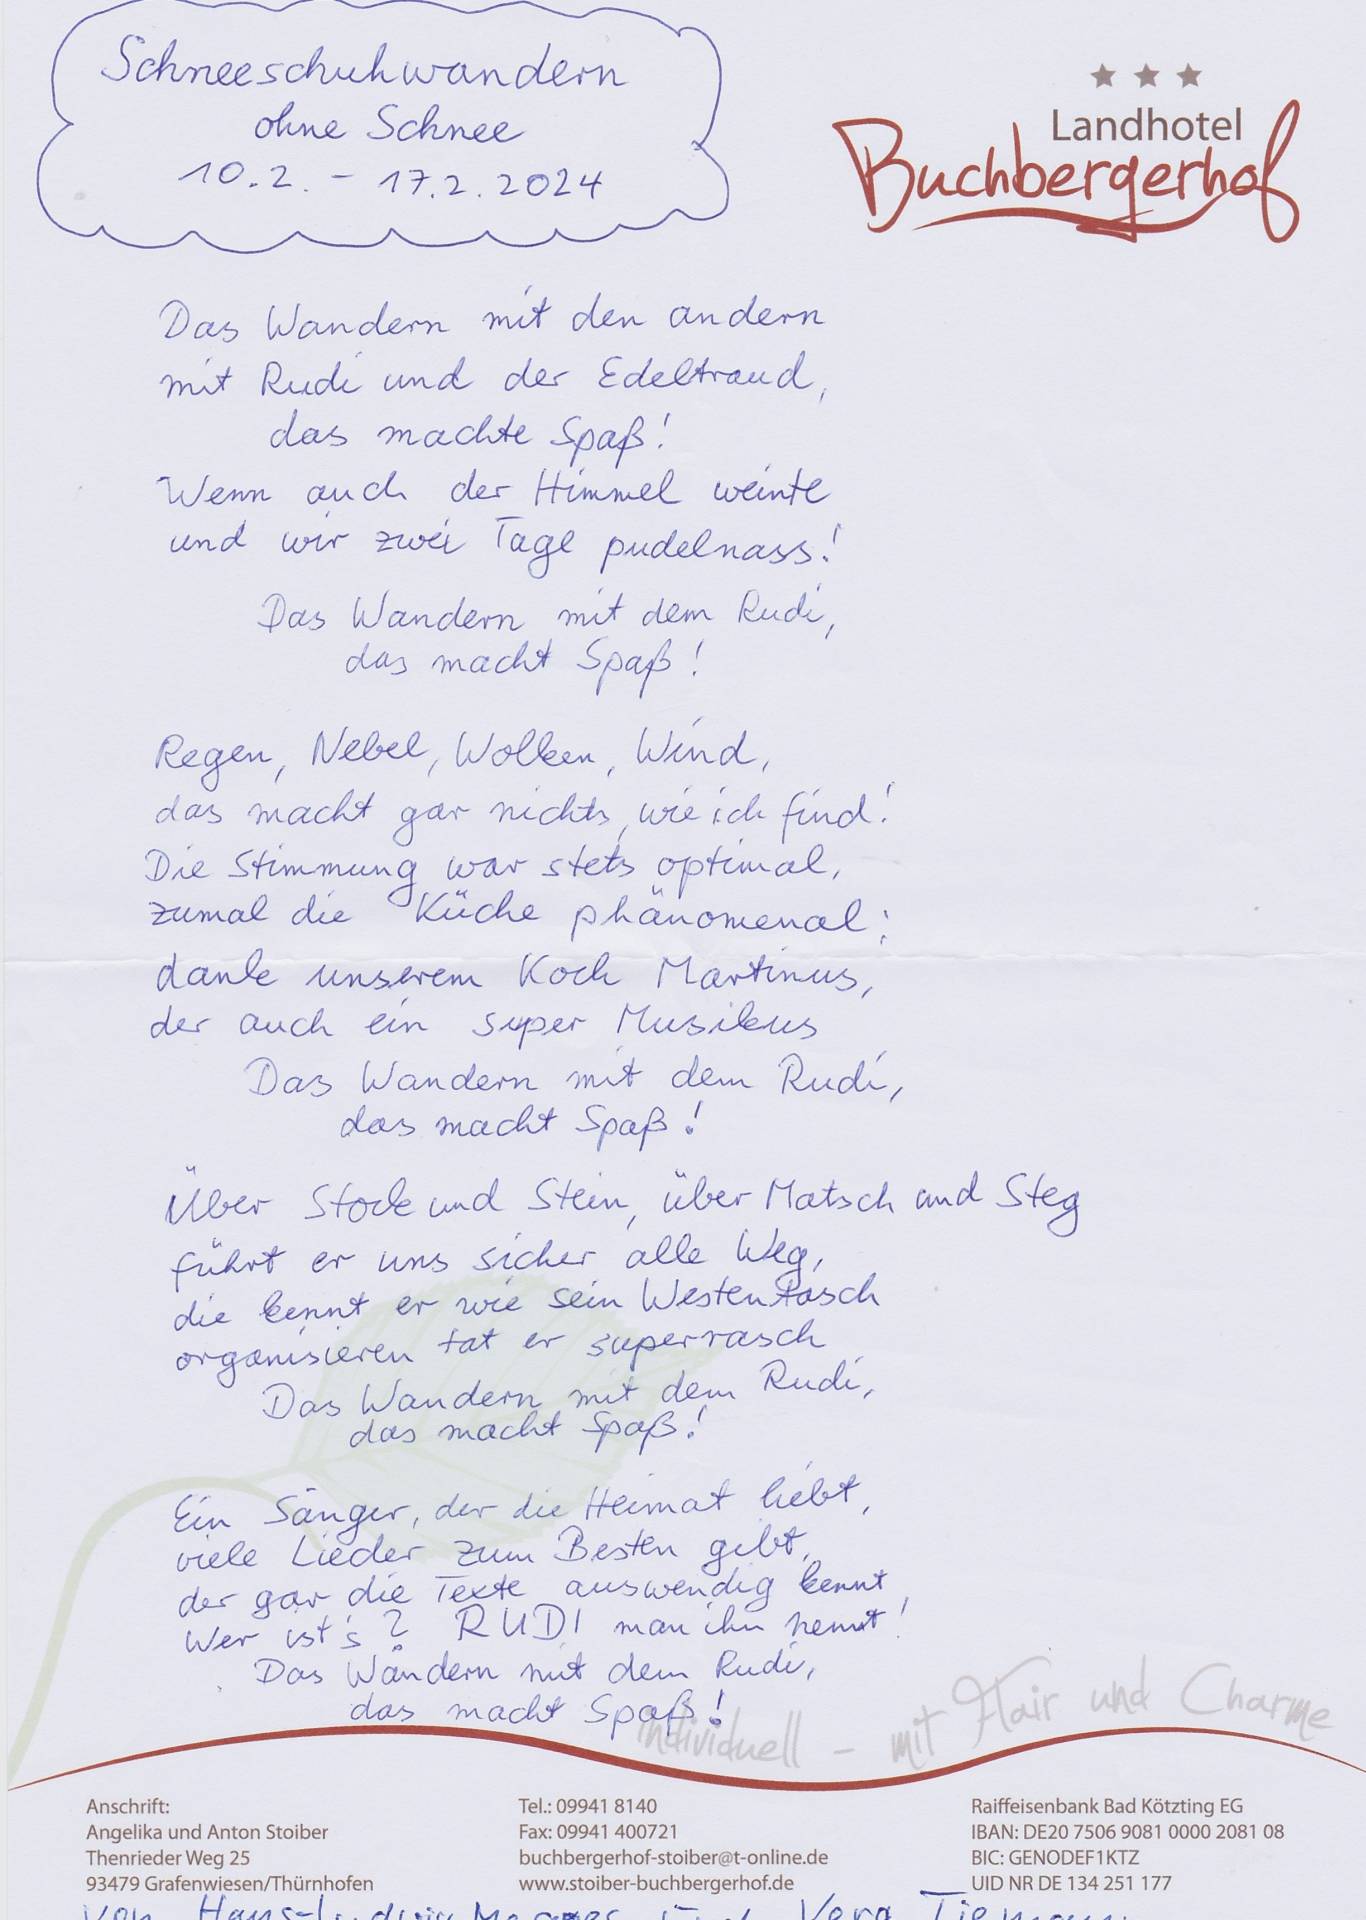 Schneeschuhwandern
ohne Schnee
10.2. - 17.2.2024
★ ★ ★
Landhotel
Buchbergerhof
Das Wandern mit den andern
mit Rudi und der Edeltraud,
das machte Spaß!
Wenn auch der Himmel weinte
und wir zwei Tage pudelnass!
Das Wandern mit dem Rudi,
das macht Spaß!
Regen, Nebel, Wolken, Wind,
das macht gar nichts, wie ich find!
Die Stimmung war stets optimal,
zumal die Küche phänomenal;
dank unserem Koch Martinus,
der auch ein super Musikus
Das Wandern mit dem Rudi,
das macht Spaß!
Über Stock und Stein, über Matsch und Steg
führt er uns sicher alle Weg,
die kennt er wie sein Westentasch
organisieren tat er superrasch
Das Wandern mit dem Rudi,
das macht Spaß!
Ein Sänger, der die Heimat liebt,
viele Lieder zum Besten gibt,
der gar die Texte auswendig kennt
Wer ist's? RUDI man ihn nennt!
Das Wandern mit dem Rudi,
das macht Spaß!
individuell - mit Flair und Charme
Anschrift:
Angelika und Anton Stoiber
Thenrieder Weg 25
93479 Grafenwiesen/Thürnhofen
Tel.: 09941 8140
Fax: 09941 400721
buchbergerhof-stoiber@t-online.de
www.stoiber-buchbergerhof.de
Raiffeisenbank Bad Kötzting EG
IBAN: DE20 7506 9081 0000 2081 08
BIC: GENODEF1KTZ
UID NR DE 134 251 177
von Hans-Ludwig und Vera